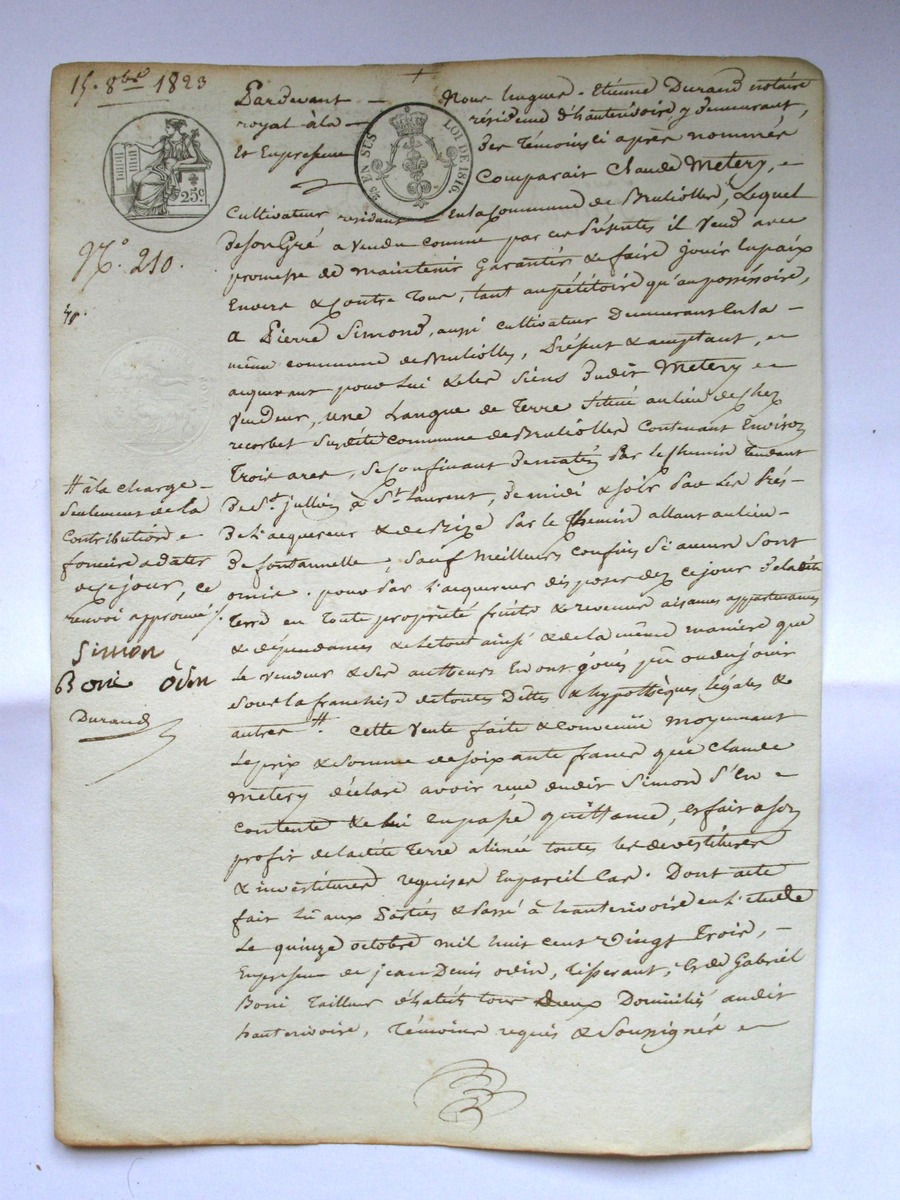 15. 8bre 1823
25c
EN SUS LOI DE 1816
N.° 210.
Pardevant — Nous hugues - Etienne Durand notaire
royal à la — résidence d'hauterivoire y Demeurant,
Et En presence des Témoins ci après nommés
Comparait Claude Metery,
Cultivateur residant En la Commune de Bruliolles, Lequel
de son Gré a vendu comme par ces présentes il vend avec
promesse de maintenir Garantir & faire jouir En paix
Envers & Contre tous, tant au pétitoire qu'au possessoire,
a Pierre Simond, aussi cultivateur Demeurant En la —
même commune de Bruliolles, Présent & acceptant,
acquerant pour lui & les siens dudit Metery
Vendeur, une Langue de Terre Située au lieu de chez
recorbet Susdite Commune de Brulioles Contenant Environ
Trois ares, Se Confinant de matin Par le Chemin Tendant
de St jullien à St Laurent, de midi & soir Par Les Prés —
de L'acquereur & de Bize Par le Chemin allant au lieu —
de fontannelle, Sauf Meilleurs Confins Si aucun Sont
omis. pour Par L'acquereur disposer dez ce jour de la dite
Terre en Toute propriété fruits & revenus aisances appartenances
& dépendances & le tout ainsi & de la même maniere que
Le vendeur & Ses autheurs En ont joués pû ou du jouir
Sous la franchise de toutes Dettes & hypothèques légales &
autres #. Cette Vente faite & Convenüe Moyennant
Le prix & Somme de Soixante francs que Claude
Metery déclare avoir reçu dudit Simond S'En
Contente & lui En passe quittance, Et fait a son
profit de la dite Terre alienée toutes les devestitures
& investitures requises En pareil Cas. Dont acte
fait lû aux Parties & Passé à hauterivoire en l'etude
Le quinze octobre mil huit cent Vingt Trois, —
En presence de jean Denis odin, Tisserant, & de Gabriel
Boni Tailleur d'habits tous deux Domiciliés audit
hauterivoire, Témoins requis & Soussignés
# à la charge
Seulement de la
Contribution
fonciere a dater
de ce jour, ce
renvoi approuvé
Simon
Boni Odin
Durand